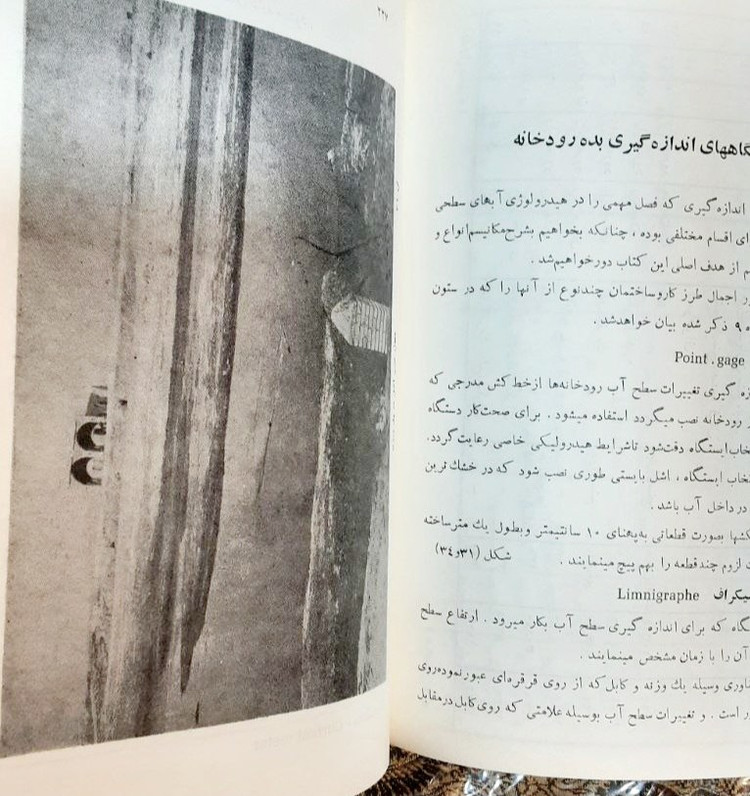 ۲۲۷
اندازه‌گیری بده رودخانه
اندازه‌گیری که فصل مهمی را در هیدرولوژی آبهای سطحی
اقسام مختلفی بوده ، چنانکه بخواهیم بشرح‌مکانیسم‌انواع و
از هدف اصلی این کتاب دورخواهیم‌شد .
اجمال طرز کاروساختمان چندنوع از آنها را که در ستون
۹ ذکر شده بیان خواهدشد .
Point . gage
گیری تغییرات سطح آب رودخانه‌ها ازخط کش مدرجی که
رودخانه نصب میگردد استفاده میشود . برای صحت‌کار دستگاه
دقت‌شود تاشرایط هیدرولیکی خاصی رعایت‌گردد.
ایستگاه ، اشل بایستی طوری نصب شود که در خشك ترین
درداخل آب باشد .
بصورت قطعاتی به‌پهنای ۱۰ سانتیمتر وبطول یك مترساخته
لزوم چندقطعه را بهم پیچ مینمایند . شکل (۳۱و۳۴)
Limnigraphe
که برای اندازه گیری سطح آب بکار میرود . ارتفاع سطح
آن را با زمان مشخص مینمایند .
وسیله یك وزنه و کابل که از روی قرقره‌ای عبورنموده‌روی
است . و تغییرات سطح آب بوسیله علامتی که روی‌کابل درمقابل